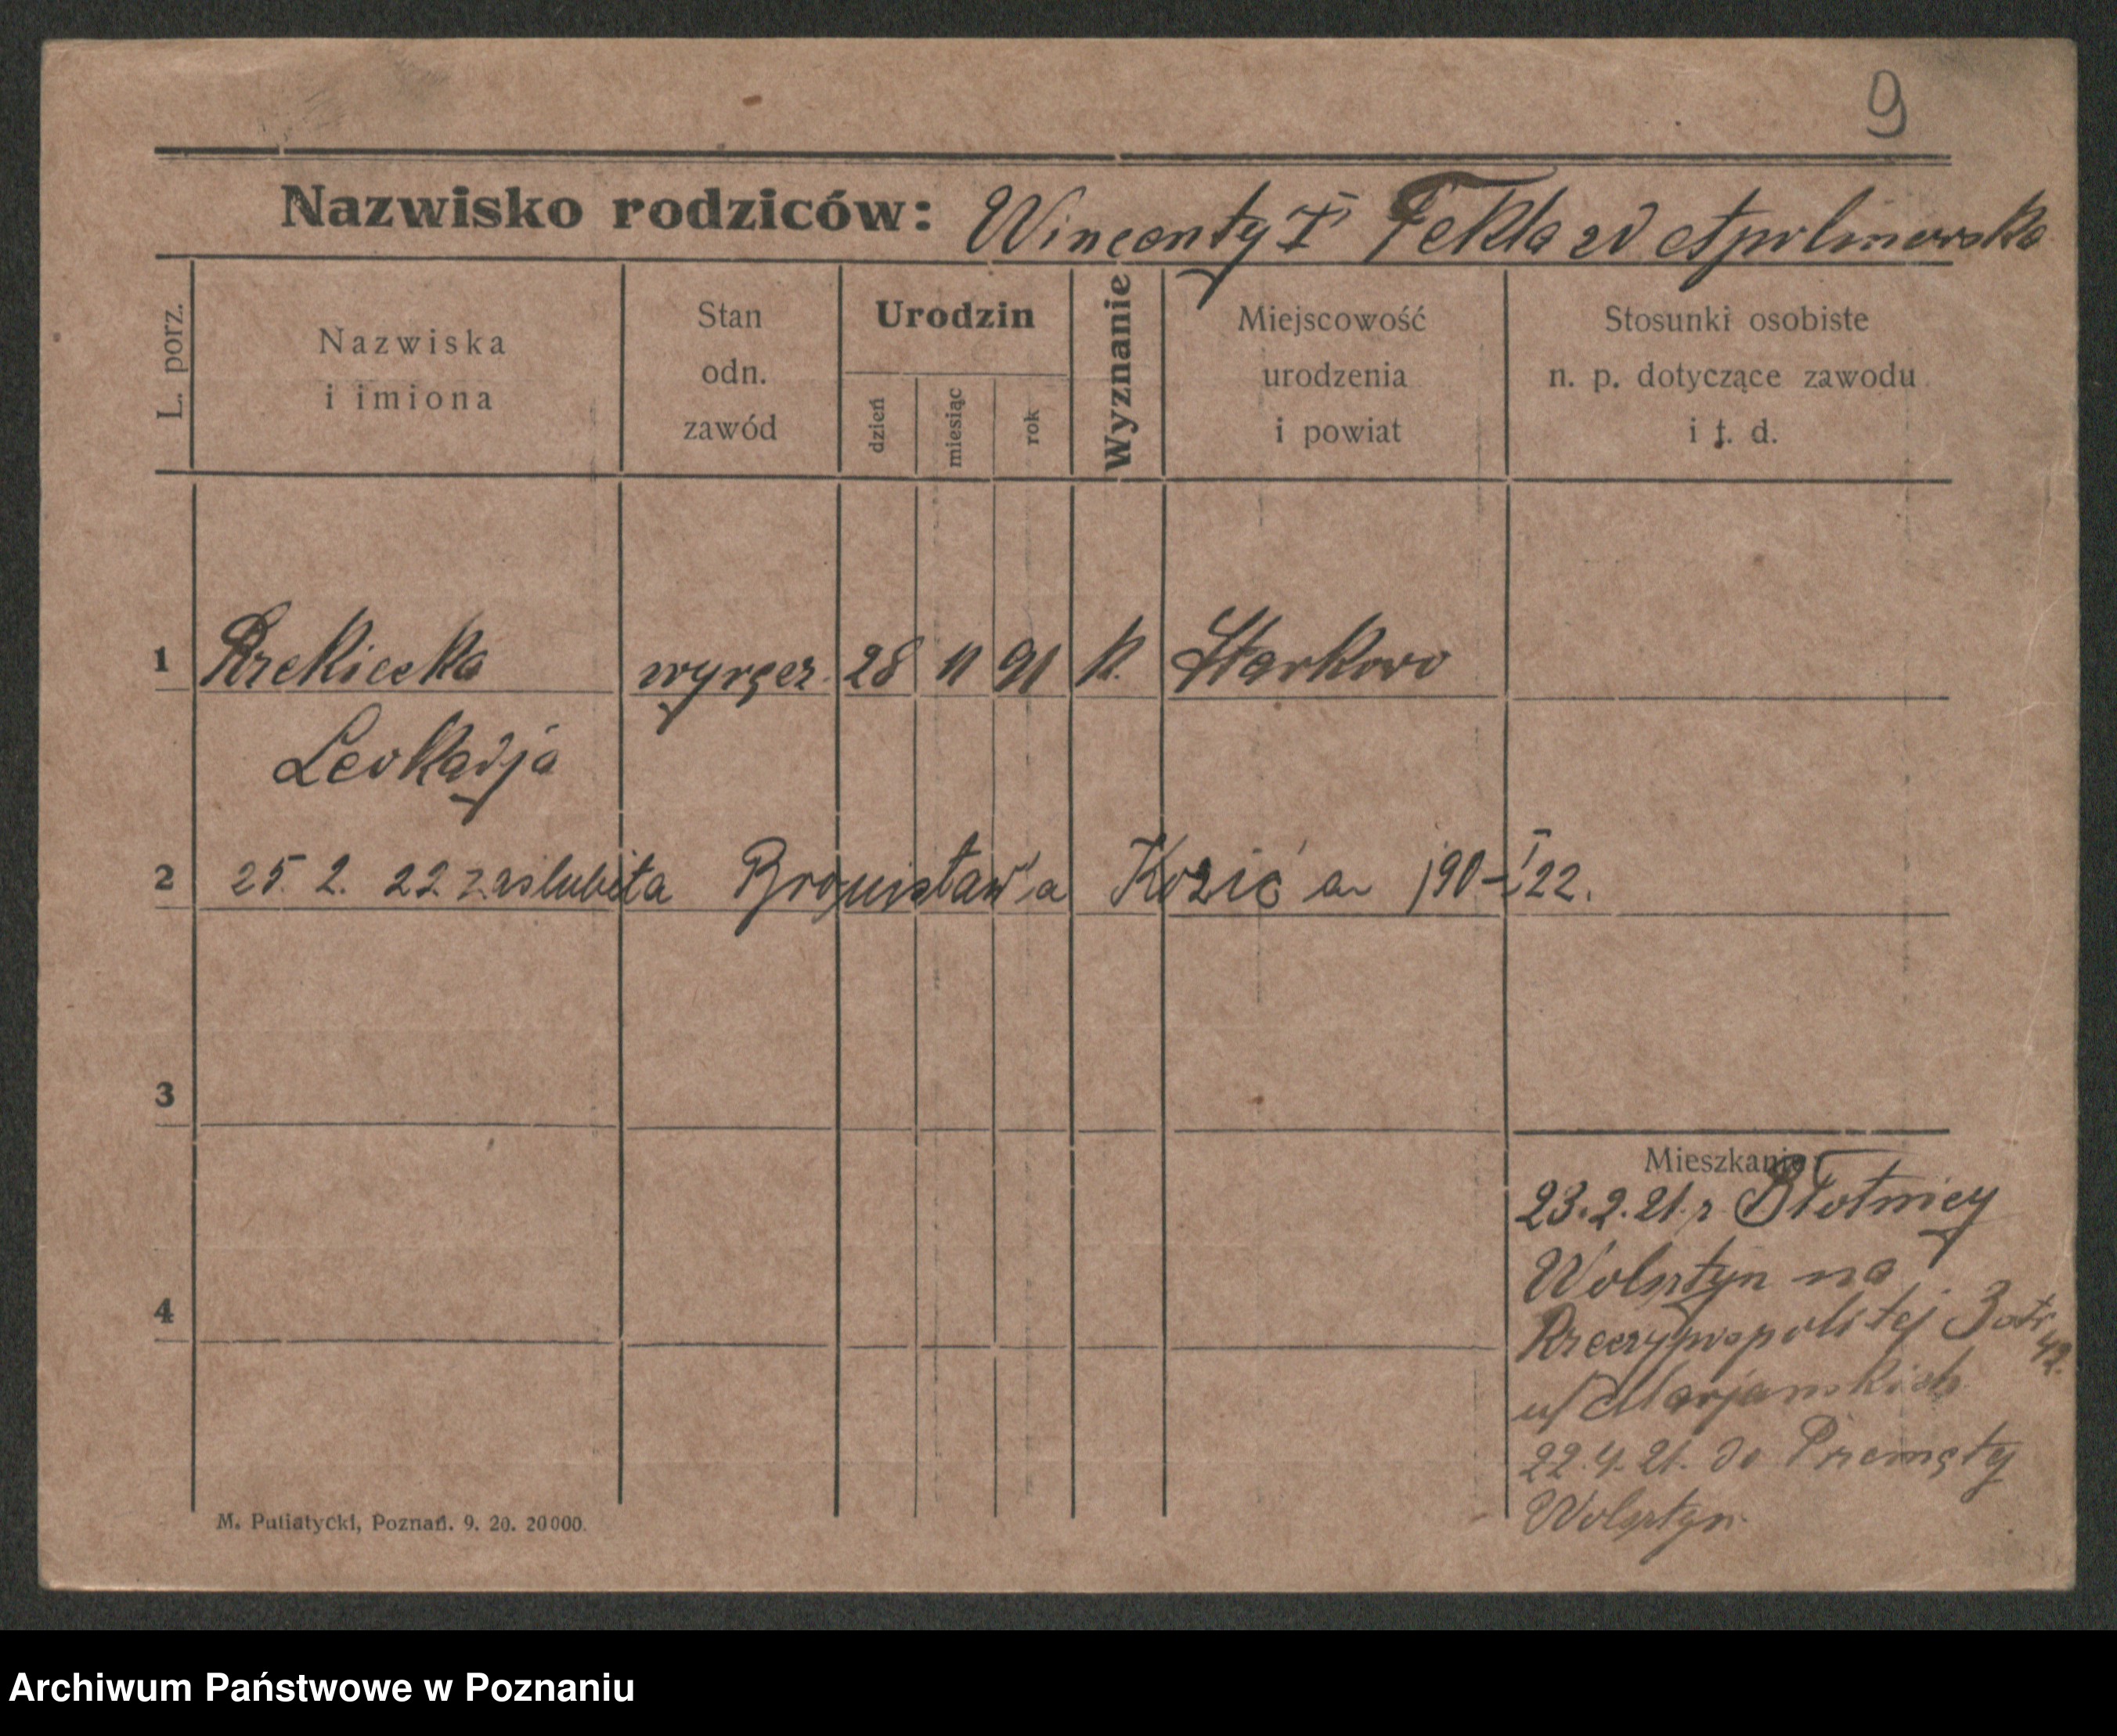 9
Nazwisko rodziców: Wincenty I Tekla zd Apolinarska
L. porz.
Nazwiska
i imiona
Stan
odn.
zawód
Urodzin
dzień
miesiąc
rok
Wyznanie
Miejscowość
urodzenia
i powiat
Stosunki osobiste
n. p. dotyczące zawodu
i t. d.
1 28 11 91 k. Starkowo
Leokadja
2 25. 2. 22 zaslubiła Bronisław'a Kozić'a 190-I 22.
3
Mieszkanie:
23.2.21. z Błotnicy
4
Wolsztyn na
Rzeczypospolitej 3
u/ Marjańskich
22.4.21. do Przemęty
Wolsztyn
M. Putiatycki, Poznań. 9. 20. 20000.
Archiwum Państwowe w Poznaniu